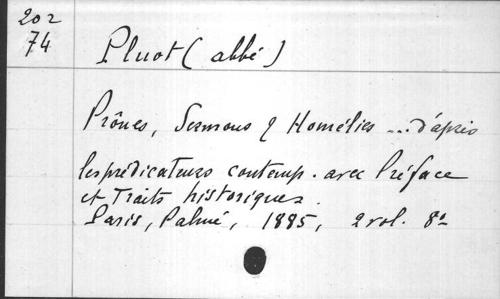 202
74
Pluot (abbé)
Prônes, Sermons & Homélies ... d'après
les prédicateurs contemp. avec Préface
et Traits historiques.
Paris, Palmé, 1885, 2 vol. 8º